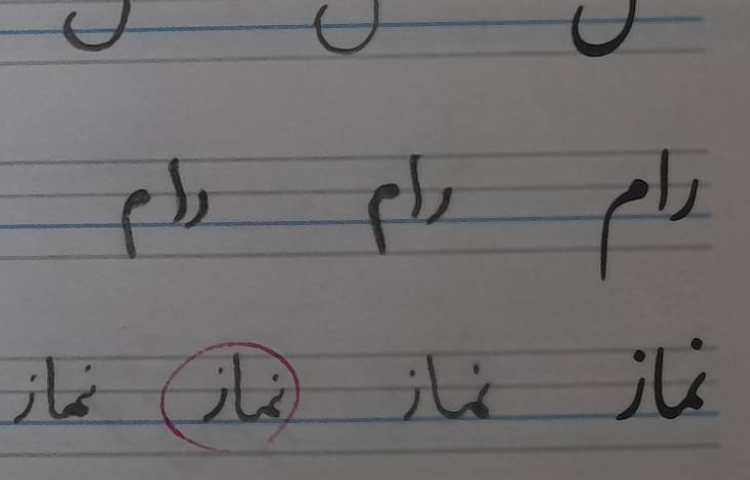 رام رام رام
نماز نماز نماز نماز